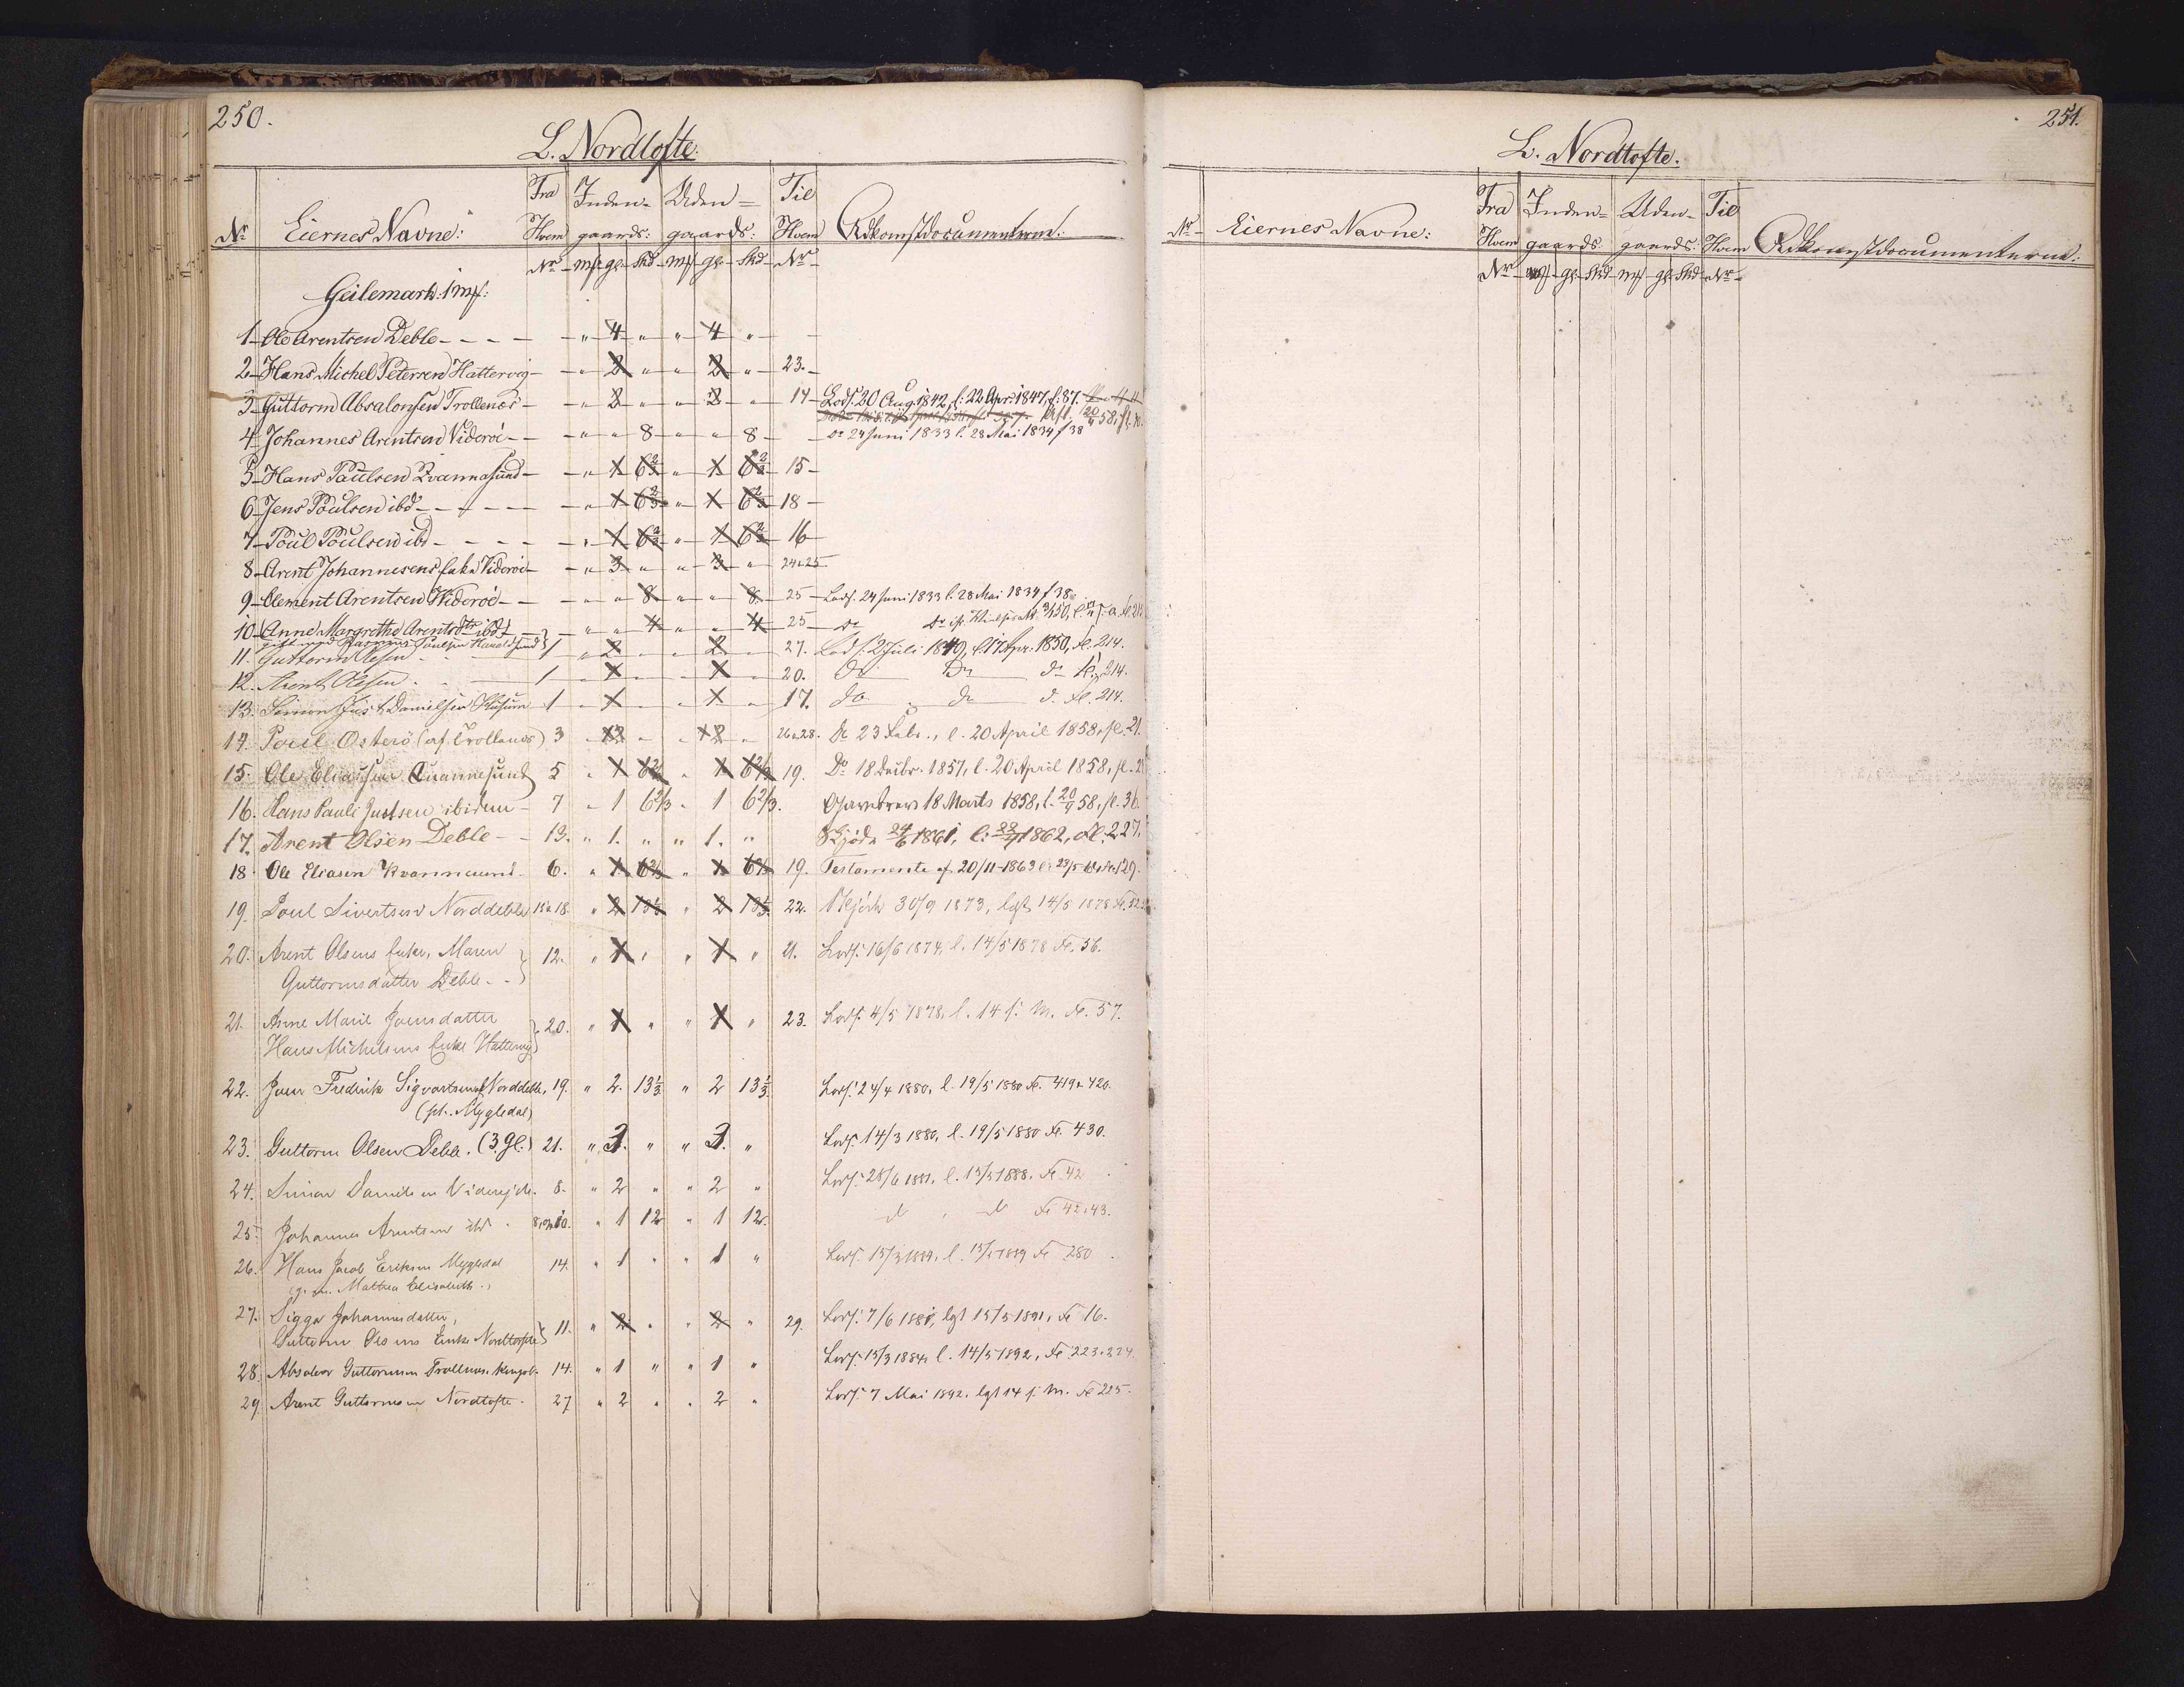 250.
L. Nordtofte.
Nr Eiernes Navne: Fra Hvem Nr Inden- gaards: mk gl. Skd Uden- gaards: mk gl. Skd Til Hvem Nr Adkomstdocumenterne:
Geilemark: 1 mk:
1 Ole Arentsen Deble - - - - " 4 " " 4 "
2 Hans Michel Petersen Hattervig - " 2 " " 2 " 23.
3 Guttorm Absalonsen Trollenæs - " 2 " " 2 " 14 Lods. 20 Aug. 1842, l. 22 Apr. 1847, f. 87.
Kft. 20/4 58, fl.
4 Johannes Arentsen Viderøe - - " " 8 " " 8 - Do 24 Juni 1833 l. 28 Mai 1834 f 38
5 Hans Poulsen Qvannasund - " 1 6 2/3 " 1 6 2/3 15 -
6 Jens Poulsen ibd - - - - - " 1 6 2/3 " 1 6 2/3 18 -
7 Poul Poulsen ibd - - - - " 1 6 2/3 " 1 6 2/3 16
8 Arent Johannesens Enke Viderøe - " 3 " " 3 " 24 & 25
9 Clement Arentsen Widerøe - - " " 8 " " 8 25 - Lods. 24 Juni 1833 l. 28 Mai 1834 f 38
10 Anne Margrethe Arentsdtr ibd - " " 4 " " 4 25 - Do Do
11. Guttorm Olesen 1 " 2 - - 2 - 27. Lods. 2 Juli 1849, l. 17 Apr. 1850, fl. 214.
12. Arent Olesen 1 - 1 - - 1 - 20. Do Do do fl. 214.
13. Simon Just Danielsen Husum 1 - 1 - - 1 - 17. do do do fl. 214.
14. Poul Østerö (af Trollenæs) 3 - 2 - - 2 - 26 & 28. Do 23 Febr., l. 20 April 1858, fl. 21.
15. Ole Eliassen Quannesund 5 " 1 6 2/3 " 1 6 2/3 19. Do 18 Decbr. 1857, l. 20 April 1858, fl.
16. Hans Pauli Justsen ibidem - 7 - 1 6 2/3 - 1 6 2/3. Gavebrev 18 Marts 1858, l. 20/4 58, fl. 36
17. Arent Olsen Deble - - 13. " 1. " " 1. " Skjöde 24/6 1861, l: 22/4 1862, fl. 227.
18 Ole Eliasen Kvannesund. 6. " 1 6 2/3 " 1 6 2/3 19. Testamente af 20/11 - 1863
19. Poul Sivertsen Norddeble 15 & 18. " 2 13 1/3 " 2 13 1/3. 22. Skjöde 30/9 1873, lgt. 14/5 1878 Fl. 52
20. Arent Olsens Enke, Maren
Guttormsdatter Deble - - 12. " 1 " " 1 " 21. Lods. 16/6 1874, l. 14/5 1878 Fl. 56.
21. Anne Marie Joensdatter
Hans Michelsens Enke Hattervig 20. " 1 " " 1 " 23. Lods. 4/5 1878, l. 14 s. M. Fl. 57.
22. Joen Fredrik Sigvartsen, Norddeble, 19. " 2. 13 1/3 " 2 13 1/3 Lods. 24/4 1880, l. 19/5 1880 Fl. 419 & 420.
(pt. Mygledal)
23. Guttorm Olsen Deble. (3 gl.) 21. " 3. " " 3. " Lods. 14/3 1880, l. 19/5 1880 Fl. 430.
24. Simon Danielsen Viderejde. 8. " 2 " " 2 " Lods. 28/6 1881, l. 15/5 1888. Fl. 42
25. Johannes Arentsen ibd. 8, 9 & 10. " 1 12 " 1 12. d d Fl. 42 & 43.
26. Hans Jacob Eriksen Mygledal 14. " 1 " " 1 " Lods. 15/3 1884, l. 15/5 1889 Fl 280
g. m. Mathea Elisabeth.
27. Sigga Johannesdatter,
Guttorm Olsens Enke Nordtofte 11. " 2 " " 2 " 29. Lods. 7/6 1881, lgt 15/5 1891, Fl 16.
28. Absalon Guttormsen Trollnæs. 14. " 1 " " 1 " Lods. 15/3 1884, l. 14/5 1892, Fl 223 & 224
29. Arent Guttormsen Nordtofte. 27 " 2 " " 2 " Lods. 7 Mai 1892, lgt 14 s. M. Fl 225.
251.
L. Nordtofte.
Nr Eiernes Navne: Fra Hvem Nr Inden- gaards: mk gl. Skd Uden- gaards: mk gl. Skd Til Hvem Nr Adkomstdocumenterne: